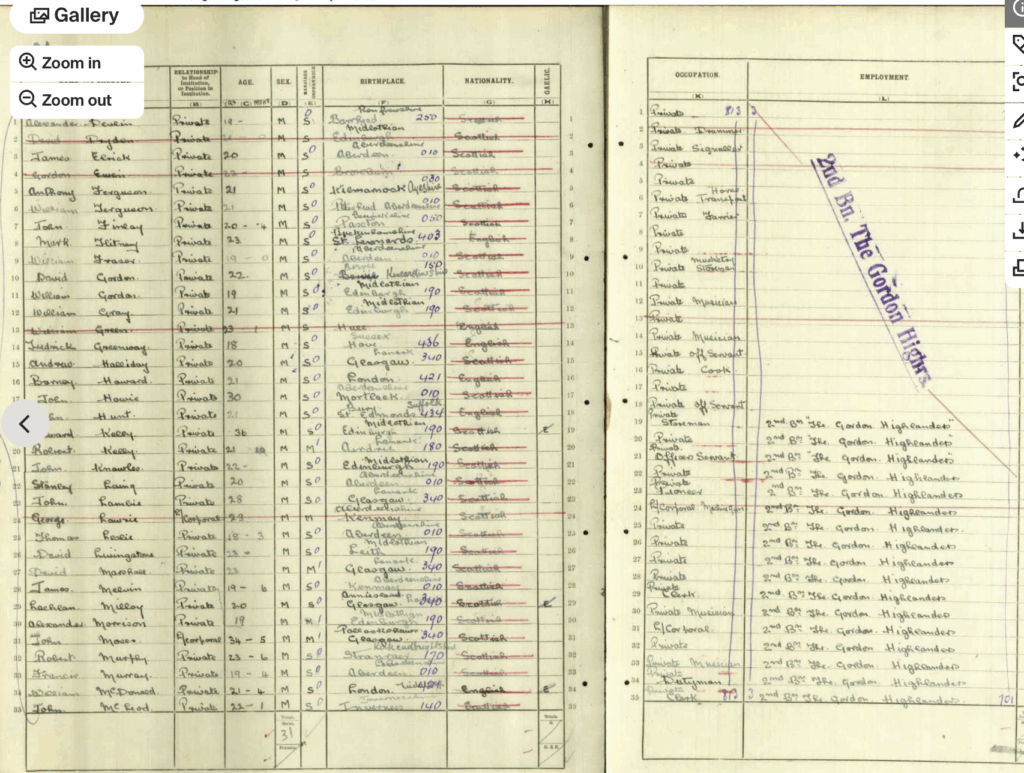 Gallery
Zoom in
Zoom out
RELATIONSHIP to Head of Institution, or Position in Institution. AGE. SEX. BIRTHPLACE. NATIONALITY. GAELIC.
OCCUPATION. EMPLOYMENT.
(B) (C) (D) (E) (F) (G) (H)
(K) (L)
Renfrewshire
1 Alexander Devlin Private 19 - M S Barrhead 250 Scottish 1
Midlothian
2 David Dryden Private 21 M S Edinburgh Scottish 2
Aberdeenshire
3 James Elrick Private 20 M S Aberdeen 010 Scottish 3
4 Gordon Private 22 - M S Scottish 4
5 Anthony Ferguson Private 21 M S Kilmarnock Ayrshire 030 Scottish 5
6 William Ferguson Private 21 M S Peterhead Aberdeenshire 010 Scottish 6
Berwickshire
7 John Finlay Private 20 - 4 M S Paxton 050 Scottish 7
8 Mark Private 23 M S St. Leonards 403 English 8
Aberdeenshire
9 William Fraser Private 19 - 0 M S Aberdeen 010 Scottish 9
10 David Gordon Private 22. M S 150 Scottish 10
Midlothian
11 William Gordon Private 19 M S Edinburgh 190 Scottish 11
Midlothian
12 William Gray Private 21 M S Edinburgh 190 Scottish 12
13 William Green Private 23 1 M S Hull English 13
Sussex
14 Fredrick Greenway Private 18 M S Hove 436 English 14
Lanark
15 Andrew Halliday Private 20 M S Glasgow 340 Scottish 15
16 Barney Howard Private 21 M S London 421 English 16
Aberdeenshire
17 John Howie Private 30 M S Mortlack 010 Scottish 17
Bury Suffolk
Hunt Private 21 M S St. Edmonds 434 English 18
Midlothian
Kelly Private 36 M S Edinburgh 190 Scottish 19
Lanark
20 Robert Kelly Private 21 M Airdrie 180 Scottish 20
Midlothian
21 John Knowles Private 22 - M S Edinburgh 190 Scottish 21
Aberdeenshire
22 Stanley Laing Private 20 M S Aberdeen 010 Scottish 22
Lanark
23 John Lambie Private 28 M S Glasgow 340 Scottish 23
Aberdeenshire
24 George Lawrie L/Corporal 29 M M Kemnay Scottish 24
Aberdeenshire
25 Thomas Leslie Private 18 - 3 M S Aberdeen 010 Scottish 25
Midlothian
26 David Livingstone Private 23 M S Leith 190 Scottish 26
Lanark
27 David Marshall Private 23 M M Glasgow 340 Scottish 27
Aberdeenshire
28 James Melvin Private 19 - 6 M S Kemnay 010 Scottish 28
Anniesland
29 Lachlan Milloy Private 20 M S Glasgow 340 Scottish 29
Midlothian
30 Alexander Morrison Private 19 M M Edinburgh 190 Scottish 30
Pollokshaws
31 John L/Corporal 34 - 5 M M Glasgow 340 Scottish 31
32 Robert Murphy Private 23 - 6 M S Stranraer 170 Scottish 32
33 Francis Murray Private 19 - 4 M S Aberdeen 010 Scottish 33
34 William McDonald Private 21 - 4 M S London English 34
35 John McLeod Private 22 - 1 M S Inverness 140 Scottish 35
31
1 Private 873 3
2 Private Drummer
3 Private Signaller
4 Private
5 Private
Horse
6 Private Transport
7 Private Farrier
8 Private
9 Private
10 Private
11 Private
12 Private Musician
13 Private
14 Private Musician
15 Private Off Servant
16 Private Cook
17 Private
18 Private off Servant
Private
19 Storeman 2nd Bn "The Gordon Highlanders"
20 Private 2nd Bn "The Gordon Highlanders"
Private
21 Officers Servant 2nd Bn "The Gordon Highlanders"
22 Private 2nd Bn The Gordon Highlanders
Private
23 Pioneer 2nd Bn The Gordon Highlanders
24 L/Corporal Musician 2nd Bn The Gordon Highlanders
25 Private 2nd Bn The Gordon Highlanders
26 Private 2nd Bn The Gordon Highlanders
27 Private 2nd Bn The Gordon Highlanders
28 Private 2nd Bn The Gordon Highlanders
Private
29 Clerk 2nd Bn The Gordon Highlanders
30 Private Musician 2nd Bn The Gordon Highlanders
31 L/Corporal 2nd Bn The Gordon Highlanders
32 Private 2nd Bn The Gordon Highlanders
33 Private Musician 2nd Bn The Gordon Highlanders
34 Dutyman 2nd Bn The Gordon Highlanders
Private
35 Clerk 873 3 2nd Bn The Gordon Highlanders 701
2nd Bn. The Gordon Highrs.